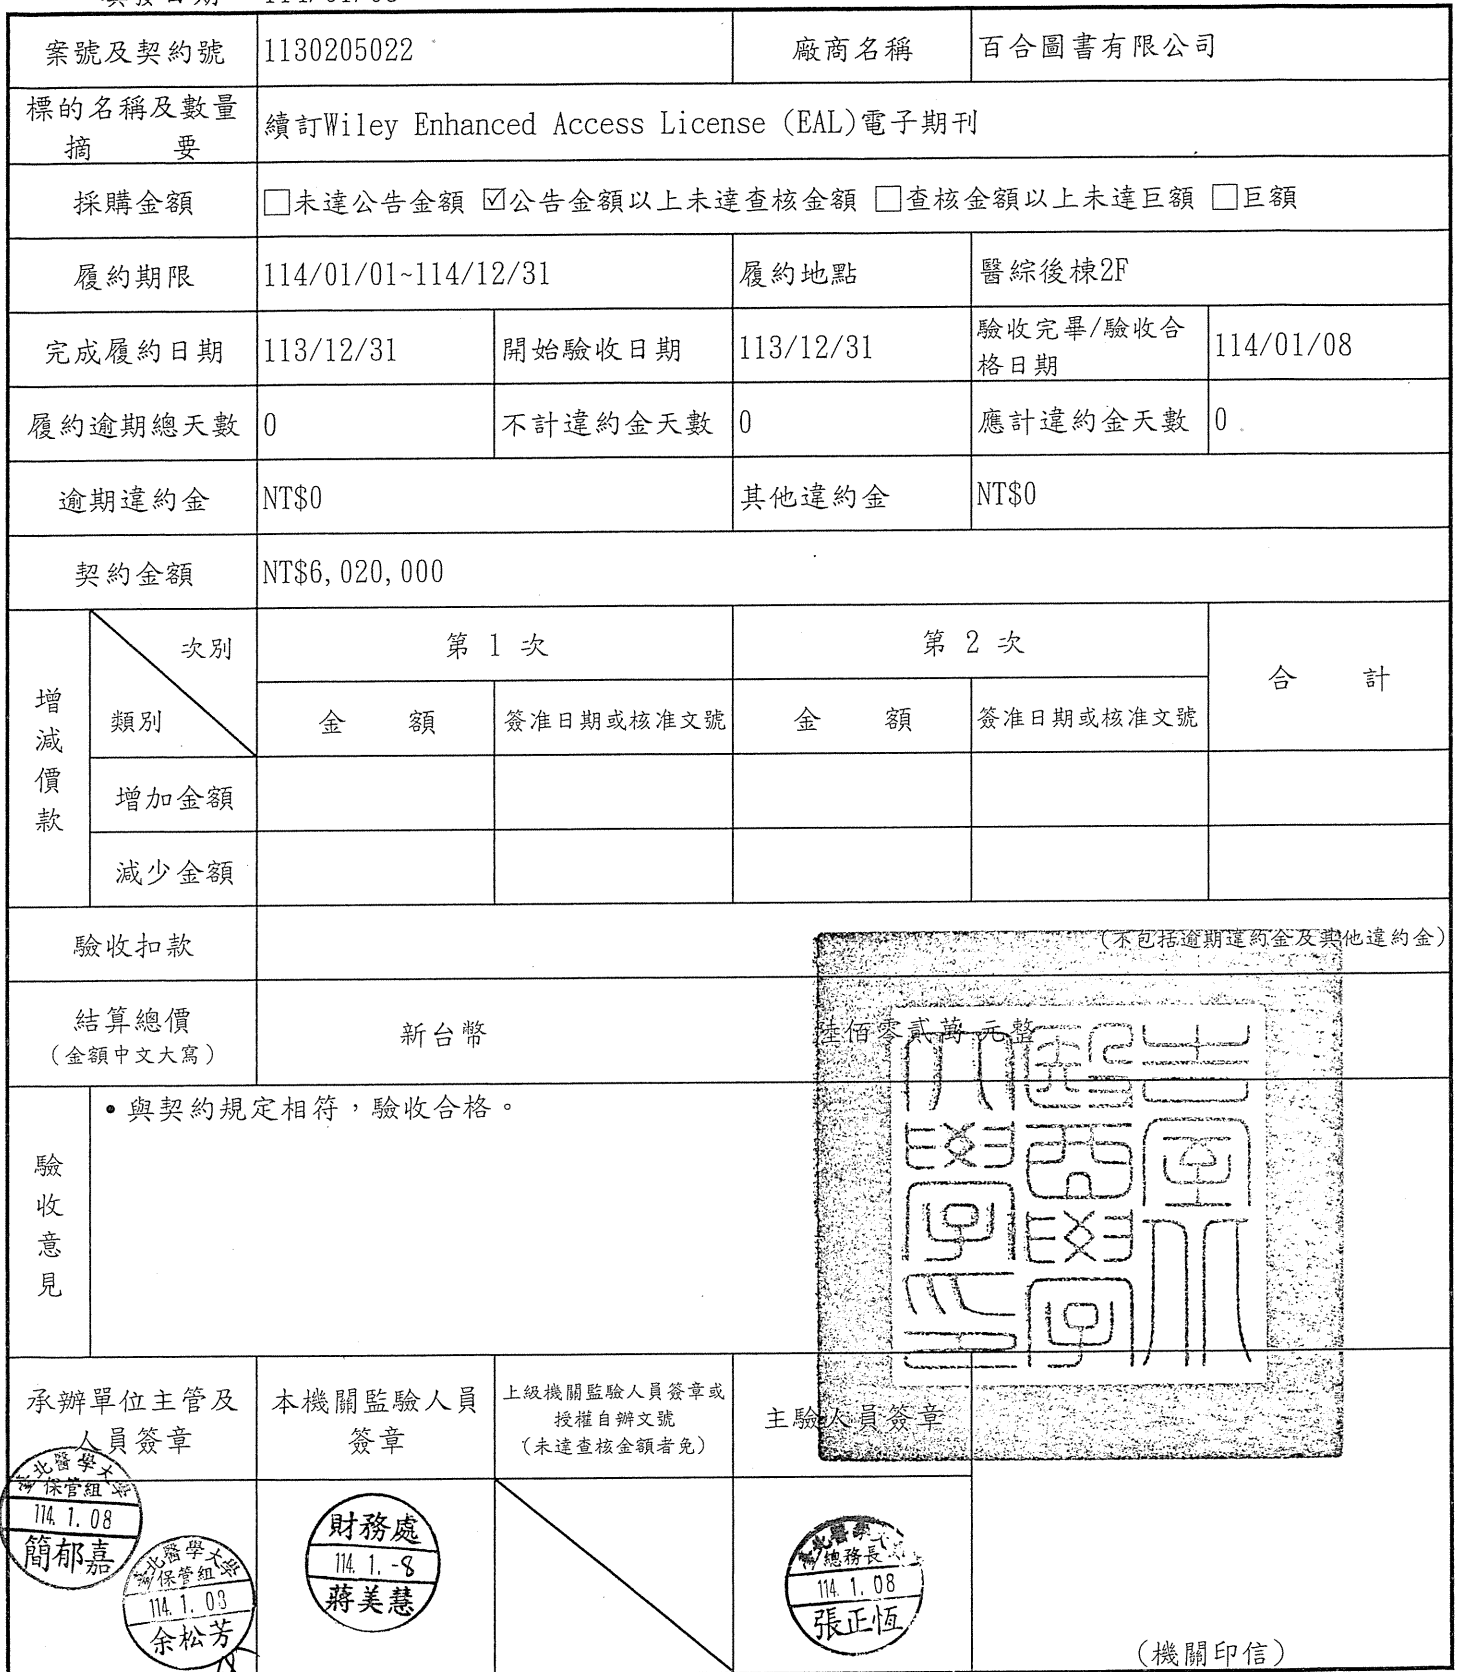 案號及契約號 1130205022 廠商名稱 百合圖書有限公司
標的名稱及數量
摘 要
續訂Wiley Enhanced Access License (EAL)電子期刊
採購金額 □未達公告金額 ☑公告金額以上未達查核金額 □查核金額以上未達巨額 □巨額
履約期限 114/01/01~114/12/31 履約地點 醫綜後棟2F
完成履約日期 113/12/31 開始驗收日期 113/12/31
驗收完畢/驗收合
格日期
114/01/08
履約逾期總天數 0 不計違約金天數 0 應計違約金天數 0
逾期違約金 NT$0 其他違約金 NT$0
契約金額 NT$6,020,000
增減價款
次別
類別
第 1 次 第 2 次 合 計
金 額 簽准日期或核准文號 金 額 簽准日期或核准文號
增加金額
減少金額
驗收扣款 (不包括逾期違約金及其他違約金)
結算總價
(金額中文大寫)
新台幣 陸佰零貳萬 元整
驗收意見
•與契約規定相符，驗收合格。
承辦單位主管及
人員簽章
本機關監驗人員
簽章
上級機關監驗人員簽章或
授權自辦文號
(未達查核金額者免)
主驗人員簽章
臺北醫學大學
保管組
114. 1. 08
簡郁嘉
臺北醫學大學
保管組
114. 1. 08
余松芳
財務處
114. 1. -8
蔣美慧
臺北醫學大
總務長
114. 1. 08
張正恆
(機關印信)